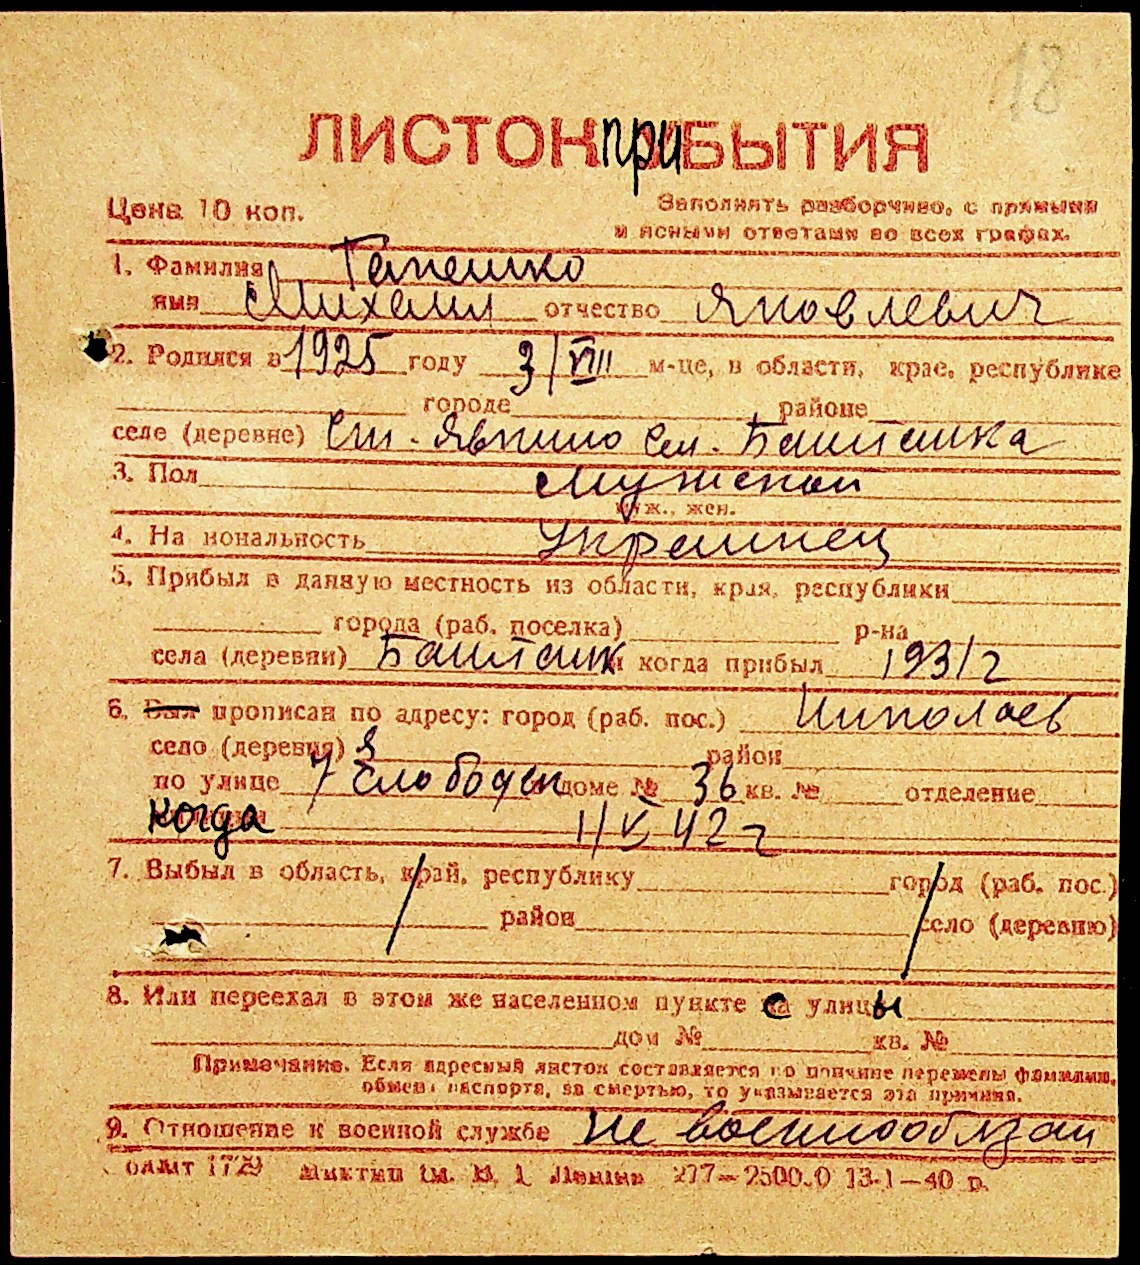 18
ЛИСТОК приБЫТИЯ
Цена 10 коп.
Заполнять разборчиво, с прямыми
и ясными ответами во всех графах.
1. Фамилия Гапешко
имя Михаил отчество Яковлевич
2. Родился в 1925 году 3/VIII м-це, в области, крае, республике
городе районе
селе (деревне) Ст. Явкино Сел. Баштанка
3. Пол Мужской
муж., жен.
4. На иональность Украинец
5. Прибыл в данную местность из области, края, республики
города (раб. поселка) р-на
села (деревни) Баштанк и когда прибыл 1931 г
6. Был прописан по адресу: город (раб. пос.) Николаев
село (деревня) район
по улице 7 Слободск доме № 36 кв. № отделение
когда 11/V 42 г
7. Выбыл в область, край, республику город (раб. пос.)
район село (деревню)
8. Или переехал в этом же населенном пункте с улицы
дом № кв. №
Примечание. Если адресный листок составляется по причине перемены фамилии,
обмена паспорта, за смертью, то указывается эта причина.
9. Отношение к военной службе Не военнообязан
им. В. І. Леніна 277—2500.0 13-1—40 р.